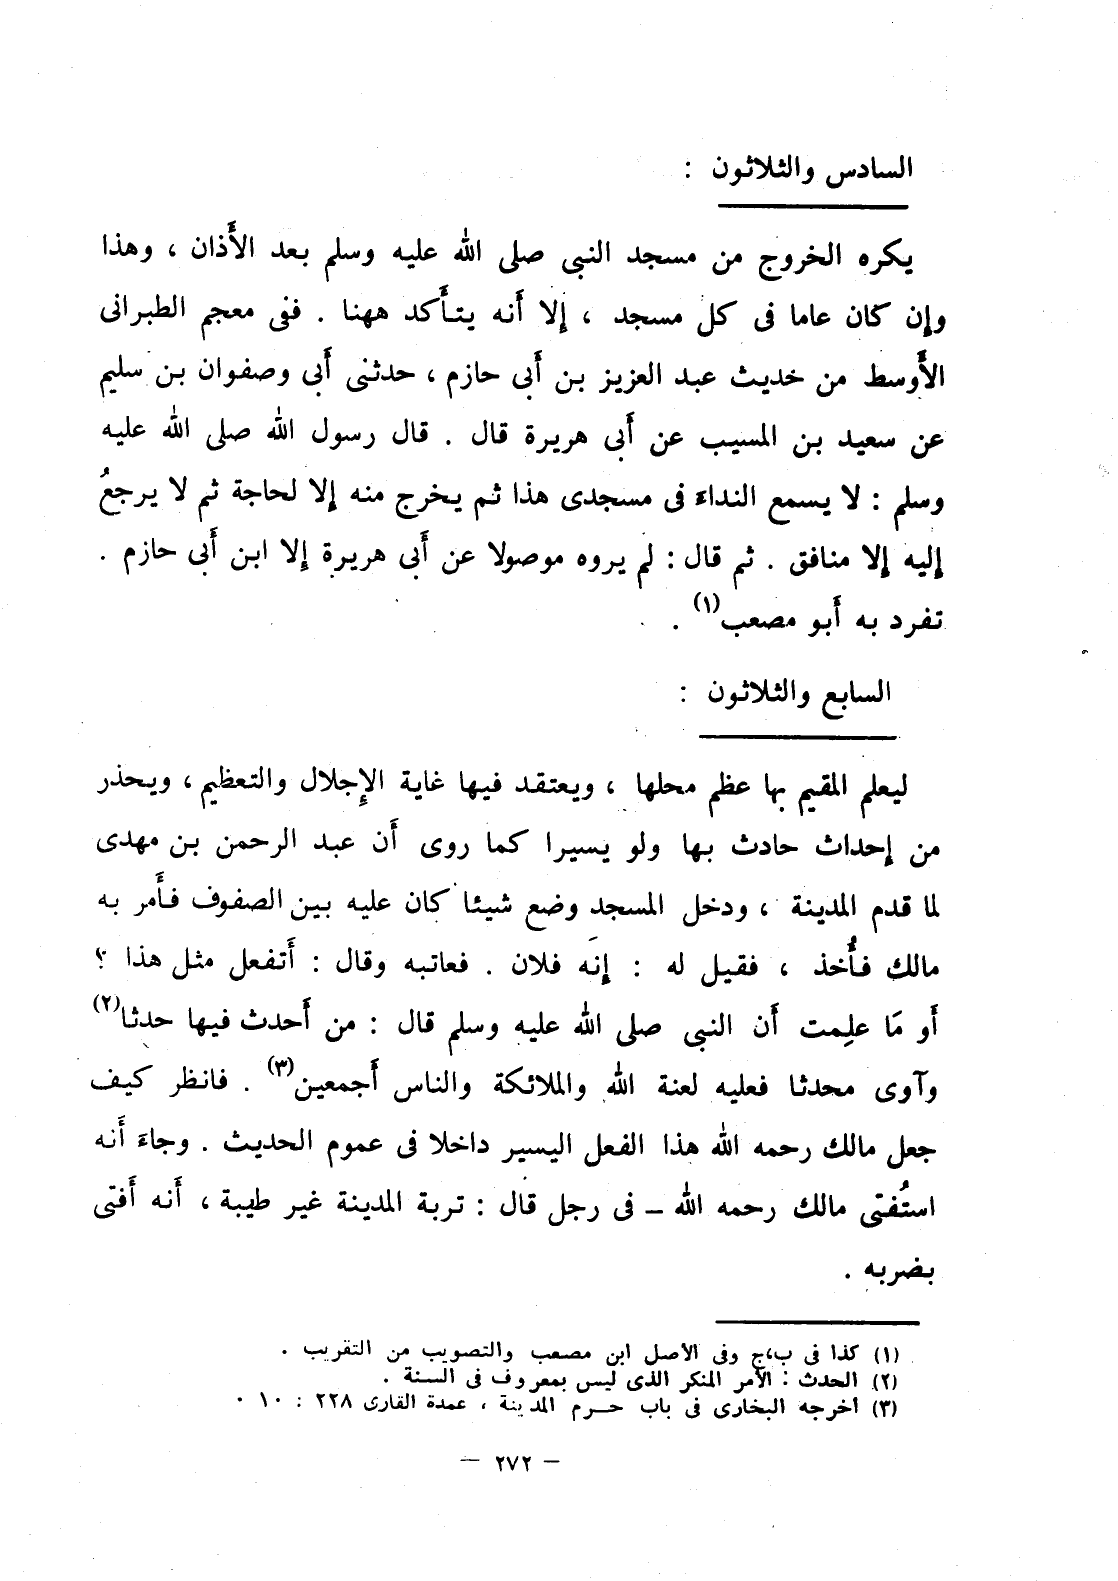 السادس والثلاثون :
يكره الخروج من مسجد النبى صلى الله عليه وسلم بعد الأَذان ، وهذا
وإن كان عاما فى كل مسجد ، إلا أَنه يتأَكد ههنا . ففى معجم الطبرانى
الأَوسط من حديث عبد العزيز بن أَبى حازم ، حدثنى أَبى وصفوان بن سليم
عن سعيد بن المسيب عن أَبى هريرة قال . قال رسول الله صلى الله عليه
وسلم : لا يسمع النداءَ فى مسجدى هذا ثم يخرج منه إلا لحاجة ثم لا يرجعُ
إليه إلا منافق . ثم قال : لم يروه موصولا عن أَبى هريرة إلا ابن أَبى حازم .
تفرد به أَبو مصعب(١) .
السابع والثلاثون :
ليعلم المقيم بها عظم محلها ، ويعتقد فيها غاية الإجلال والتعظيم ، ويحذر
من إحداث حادث بها ولو يسيرا كما روى أَن عبد الرحمن بن مهدى
لما قدم المدينة ، ودخل المسجد وضع شيئا كان عليه بين الصفوف فأَمر به
مالك فأُخذ ، فقيل له : إنَه فلان . فعاتبه وقال : أَتفعل مثل هذا ؟
أَو مَا علِمت أَن النبى صلى الله عليه وسلم قال : من أَحدث فيها حدثا(٢)
وآوى محدثا فعليه لعنة الله والملائكة والناس أَجمعين(٣) . فانظر كيف
جعل مالك رحمه الله هذا الفعل اليسير داخلا فى عموم الحديث . وجاءَ أَنه
استُفتى مالك رحمه الله – فى رجل قال : تربة المدينة غير طيبة ، أَنه أَفتى
بضربه .
(١) كذا فى ب،ج وفى الأصل ابن مصعب والتصويب من التقريب .
(٢) الحدث : الأمر المنكر الذى ليس بمعروف فى السنة .
(٣) أخرجه البخارى فى باب حرم المدينة ، عمدة القارى ٢٢٨ : ١٠ .
– ٢٧٢ –